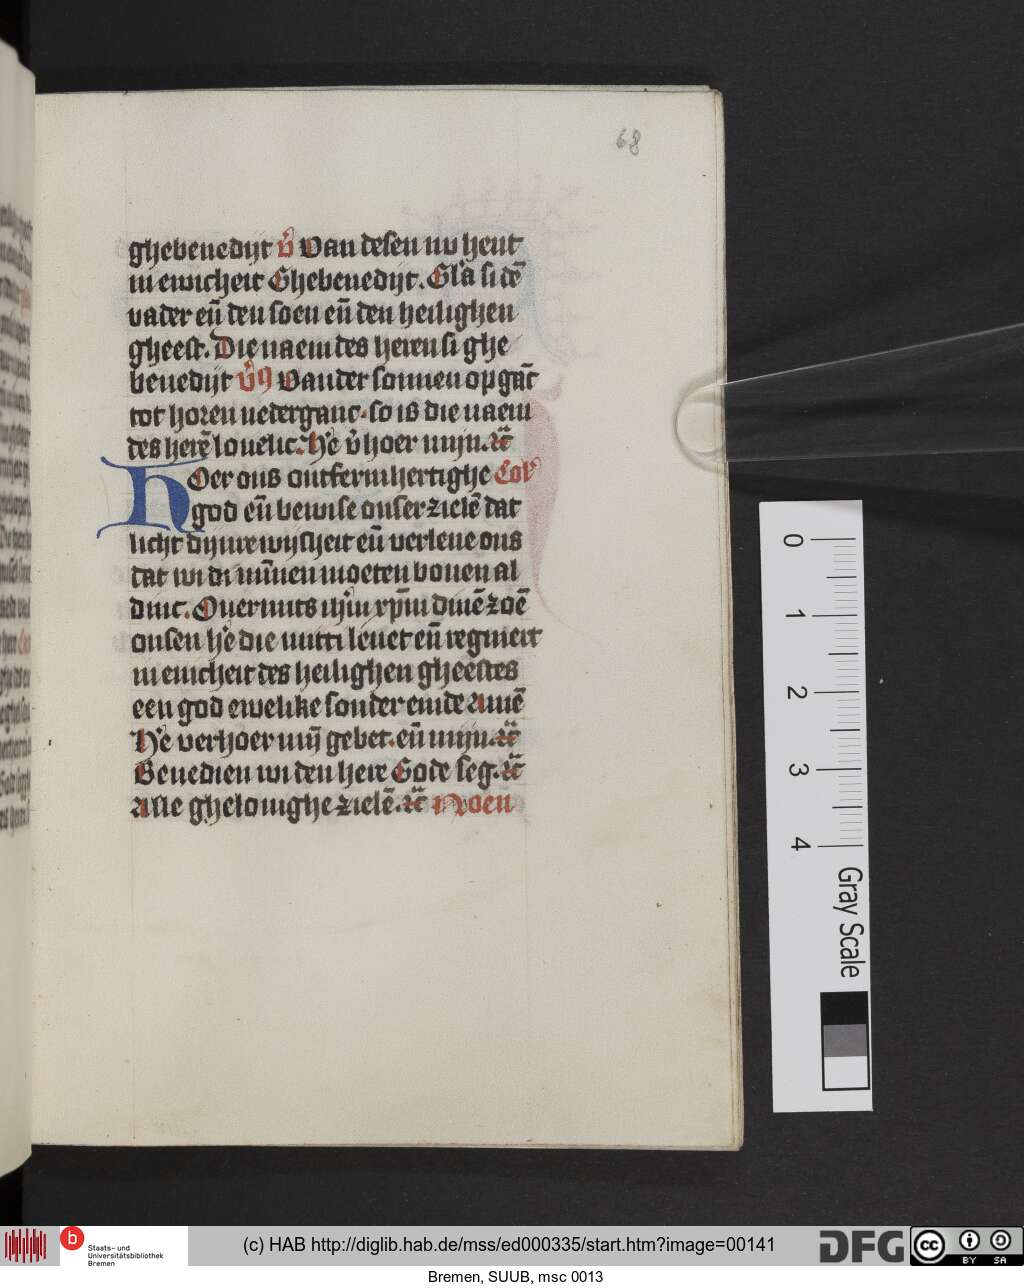 68
ghebenedijt v̊ Van desen nv hent
in ewicheit Ghebenedijt. Gl'a si dē
vader eñ den soen eñ den heilighen
gheest. Die naem des heren si ghe
benedijt v̊s Vander sonnen opgāc
tot horen nederganc. so is die naem
des herē louelic. H'e v̊hoer mijn. ⁊c̄
HOer ons ontfermhertighe Col'
god eñ bewise onser zielē dat
licht dijnre wijsheit eñ verlene ons
dat wi di mīnen moeten bouen al
dinc. Ouermits ih̄m xp̄m dinē zoē
onsen h'e die mitti leuet eñ regniert
in enicheit des heilighen gheestes
een god ewelike sonder einde amē
H'e verhoer mij gebet. eñ mijn. ⁊c̄
Benedien wi den here Gode seg. ⁊c̄
Alle ghelouighe zielē. ⁊c̄ Noen
0
1
2
3
4
Gray Scale
b
Staats- und
Universitätsbibliothek
Bremen
(c) HAB http://diglib.hab.de/mss/ed000335/start.htm?image=00141
DFG
cc
BY SA
Bremen, SUUB, msc 0013